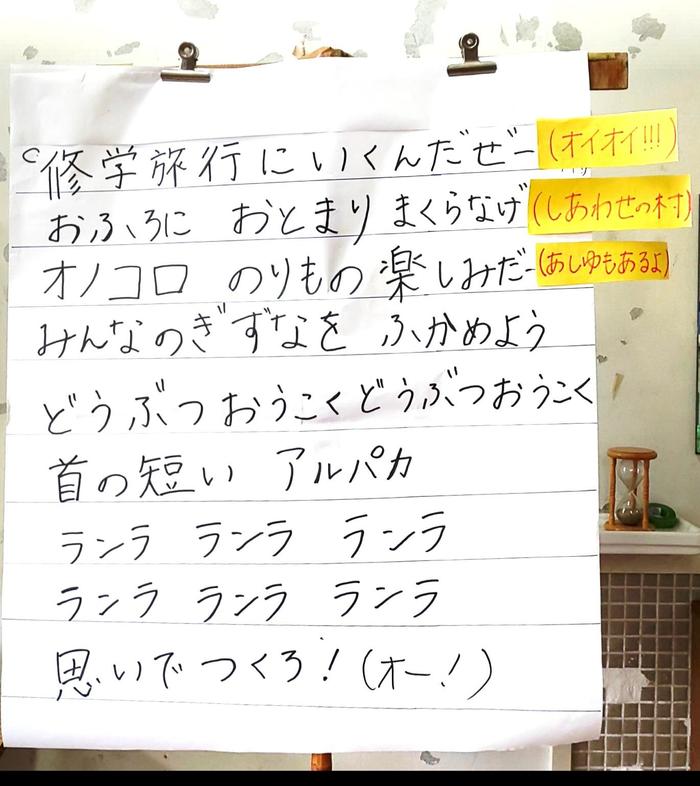 修学旅行にいくんだぜー (オイオイ!!!)
おふろに おとまり まくらなげ (しあわせの村)
オノコロ のりもの 楽しみだー (あしゆもあるよ)
みんなのぎずなを ふかめよう
どうぶつおうこくどうぶつおうこく
首の短い アルパカ
ランラ ランラ ランラ
ランラ ランラ ランラ
思いでつくろ！(オー！)